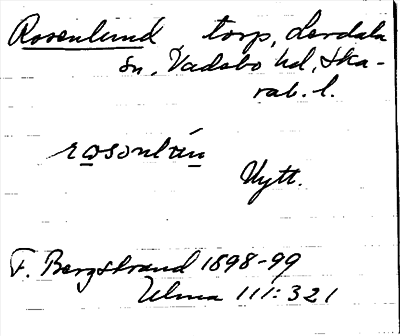 Rosenlund torp, Lerdala
sn, Vadsbo hd, Ska-
rab. l.
rosonlùn
Uytt.
F. Bergstrand 1898-99
Ulma 111:321